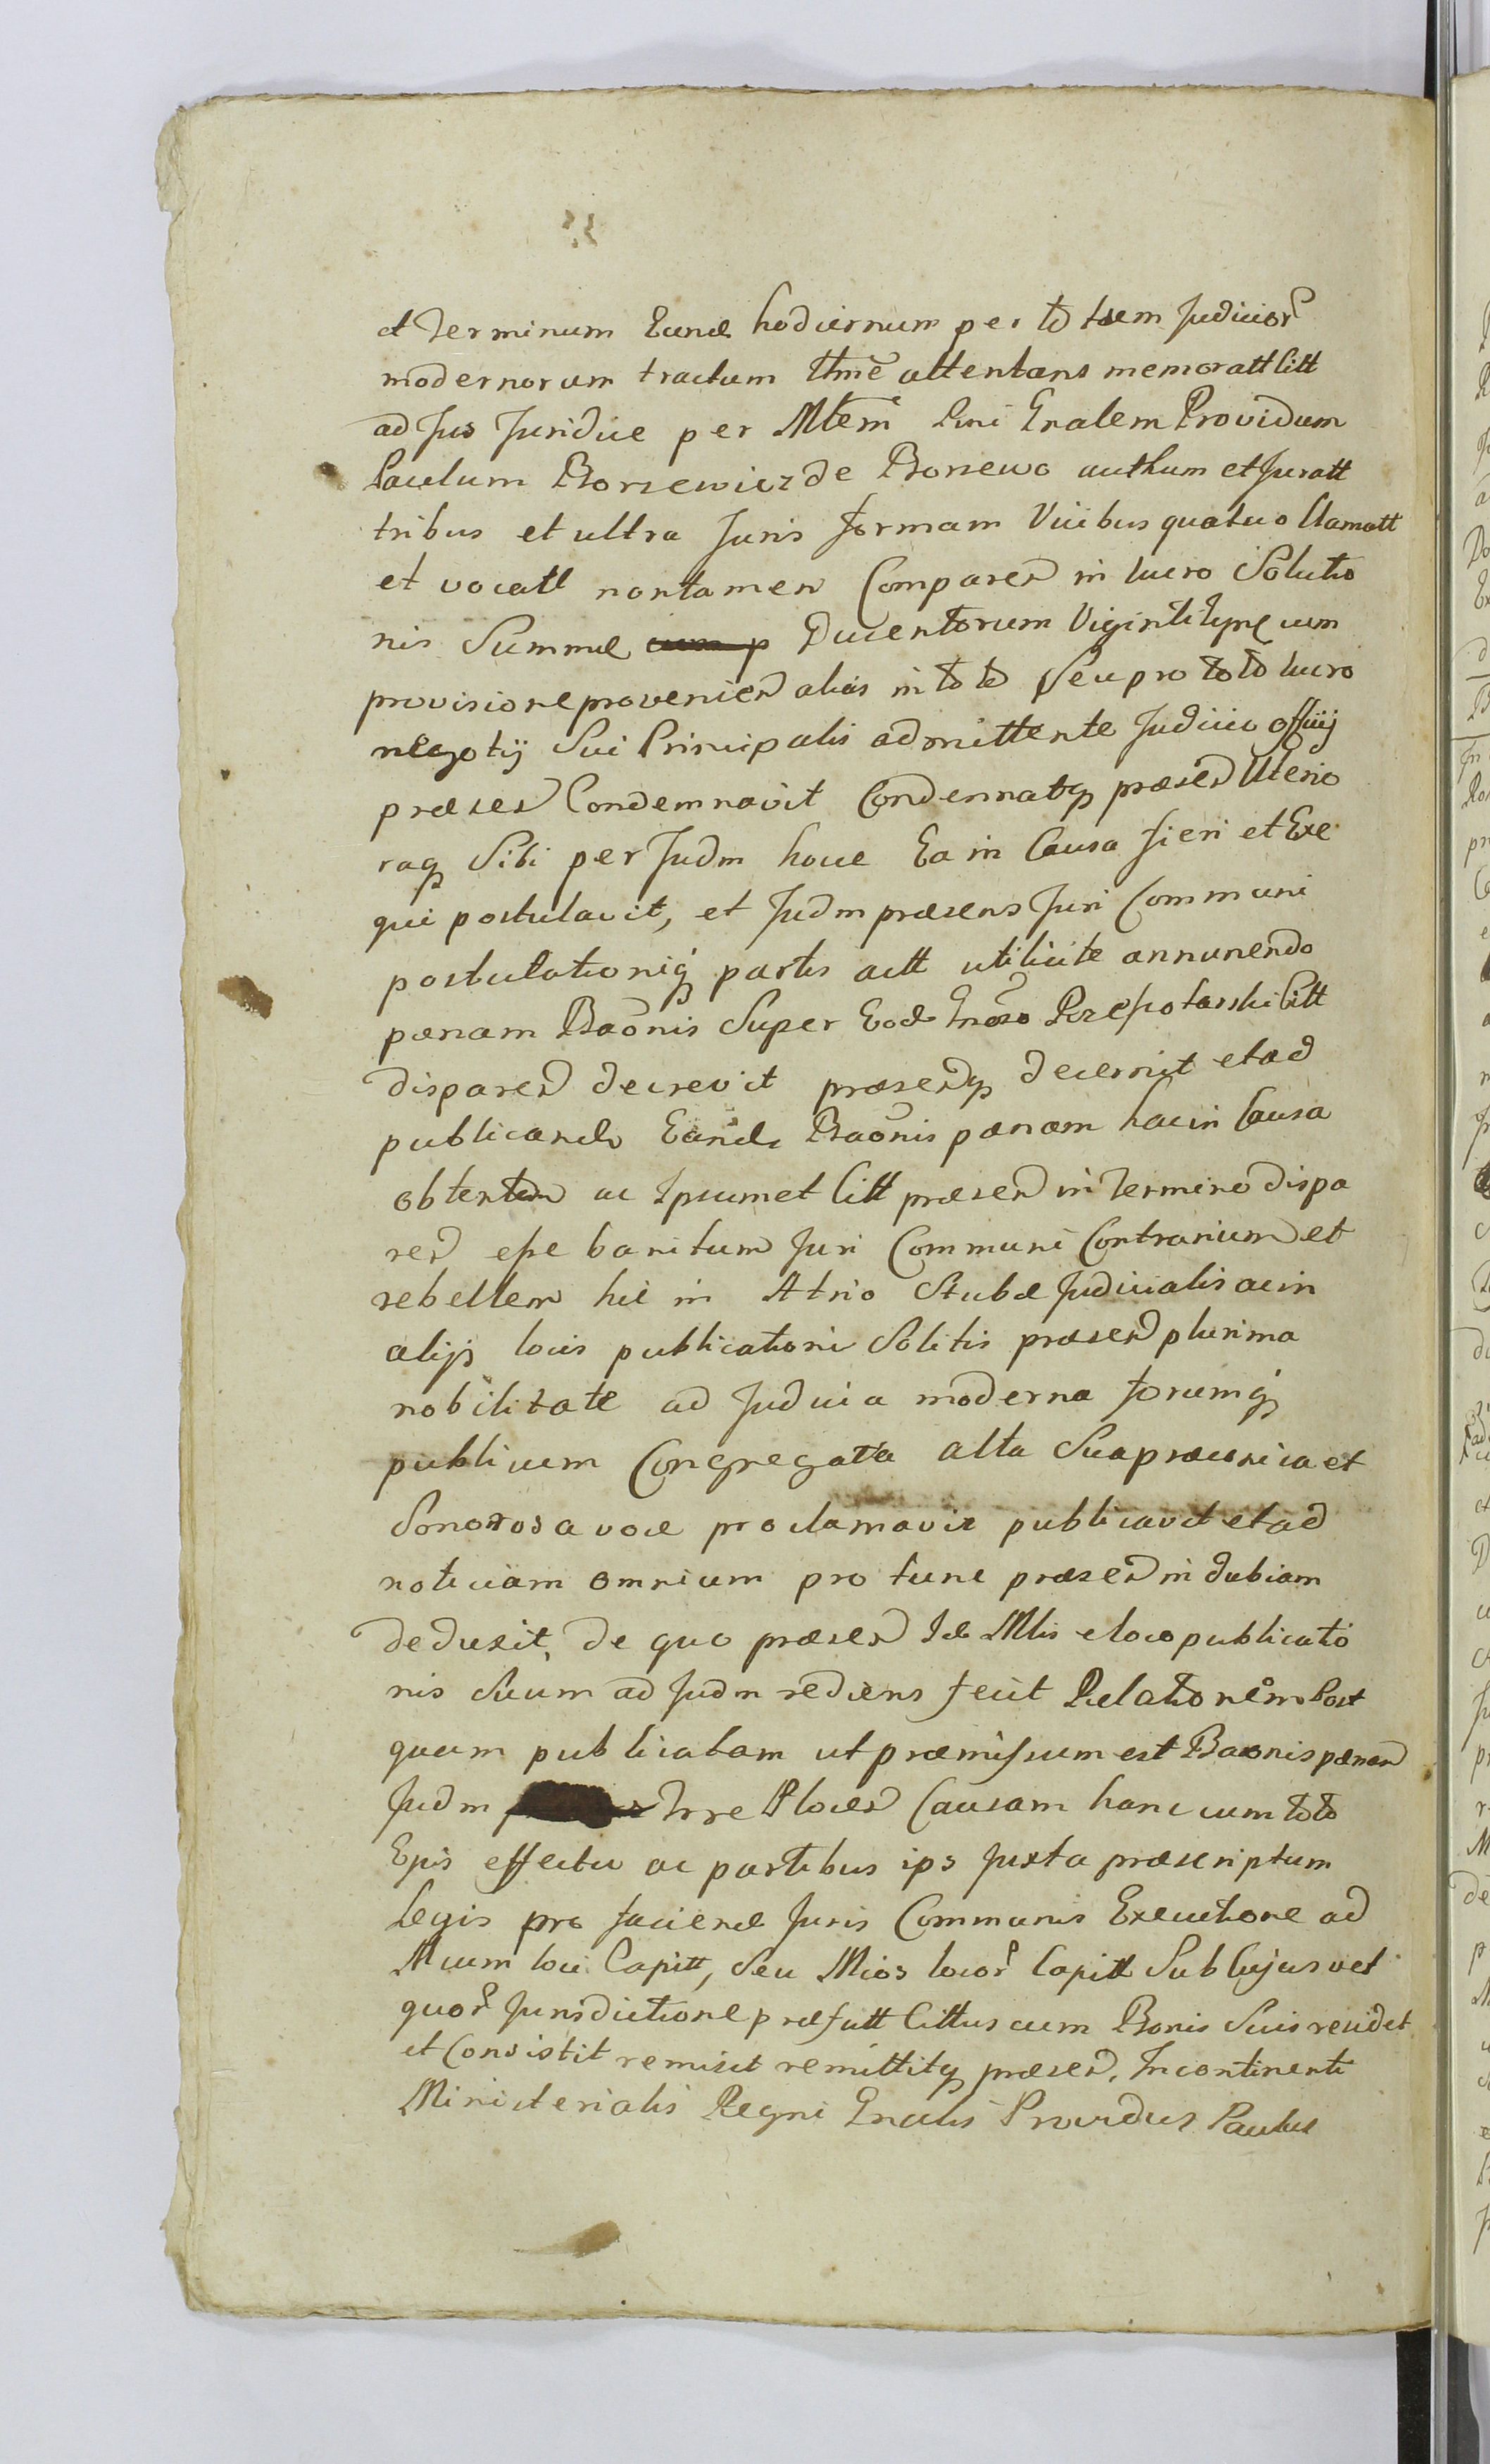 et Terminum Eund hodiernum per to tsem Judicior
modernorum tractum ttme attentans memoratt Citt
ad Jus Juridice per Mltem Rni Gnalem Providum
Paulum Borzewicz de Borzewo authum et Juratt
tribus et ultra Juris formam Vicibus quatuo Clamatt
et vocatt non tamen Comparen in lucro Solutio
nis Summæ Ducentorum Viginti tynf cum
provisione provenien alias in toto Seu pro toto lucro
negotij Sui Principalis admittente Judicio officij
præsen Condemnavit Condemnatq præsen Ulterio
raq Sibi per Judm hocce Ea in Causa fieri et Exe
qui postulavit, et Judm præsens Juri Communi
postulationiq partis actt utilicite annunendo
pænam Baonis Super Eod Gnoso citt
disparen decrevit præsenq decernit et ad
publicand Eand Baonis pænam hac in Causa
obtentam ac Ipsumet Citt præsen in Termino dispa
ren esse banitum Juri Communi Contrarium et
rebellem hic in Atrio Stubæ Judicialis ac in
alijs locis publicationi Solitis præsen plurima
nobilitate ad Judicia moderna forumq
publicum Congregata alta Sua præconica et
Sonorosa voce proclamavit publicavit et ad
noticiam omnium pro tunc præsen indubiam
deduxit, de quo præsen Id Mltis e loco publicatio
nis Suum ad Judm rediens fecit Relationem Post
quam publicatam ut præmissum est Baonis pænam
Judm Trre Plocen Causam hanc cum toto
Ejus effectu ac partibus ips Juxta præscriptum
Legis pro faciend Juris Communis Executione ad
Mcum loci Capitt, Seu Mios locor Capitt Sub Cujus vel
quor Jurisdictione præfatt Cittus cum Bonis Suis residet
et Consistit remisit remittitq præsen. Incontinenti
Ministerialis Regni Gnalis Providus Paulus